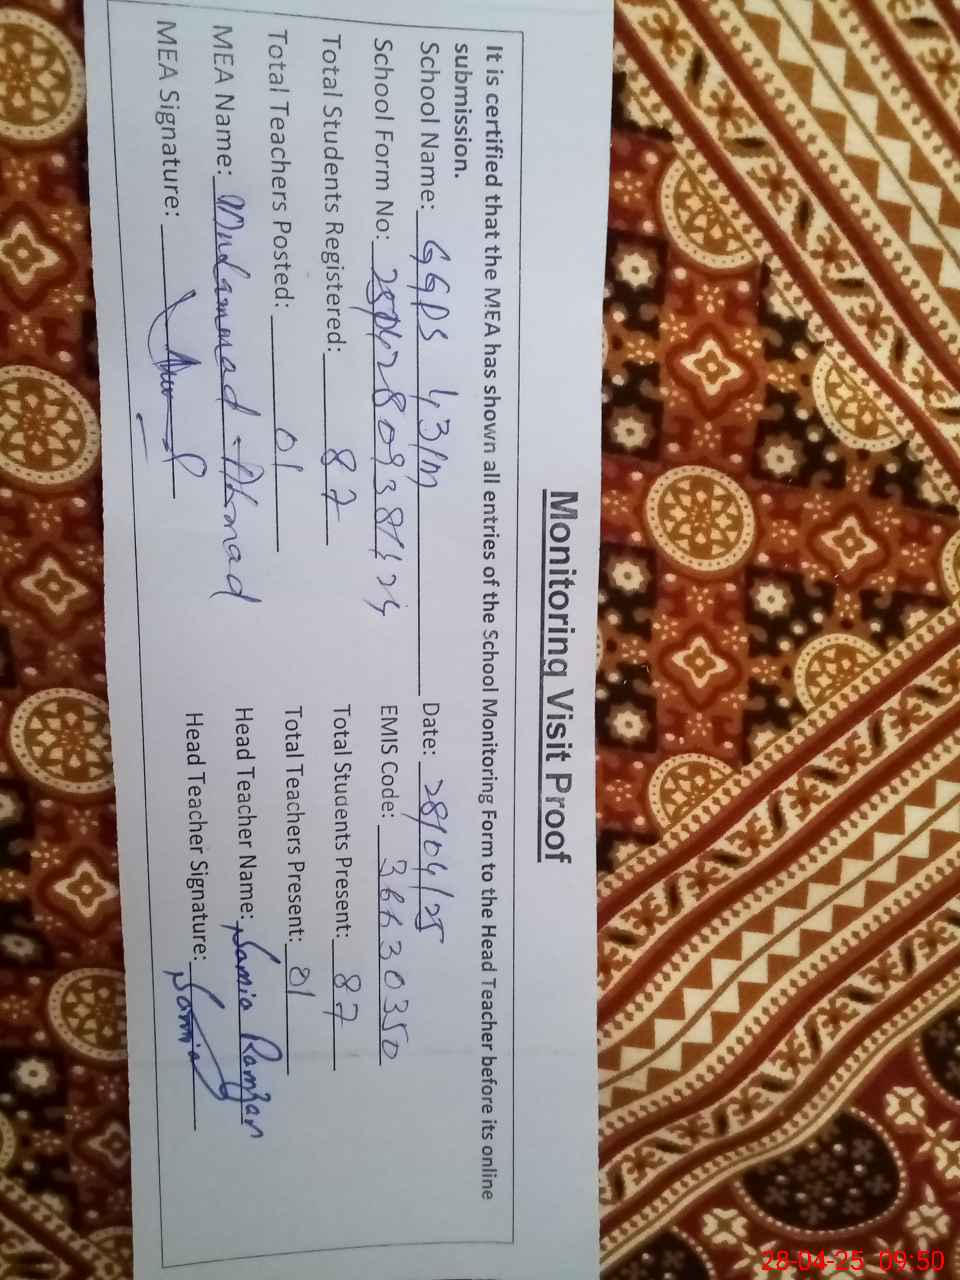 Monitoring Visit Proof
It is certified that the MEA has shown all entries of the School Monitoring Form to the Head Teacher before its online
submission.
School Name: GGPS 43/M Date: 28/04/25
School Form No: EMIS Code:
Total Students Registered: 87 Total Students Present: 87
Total Teachers Posted: 01 Total Teachers Present: 01
MEA Name: Muhammad Ahmad Head Teacher Name: Samia Ramzan
MEA Signature: Head Teacher Signature: Samia
28-04-25 09:50